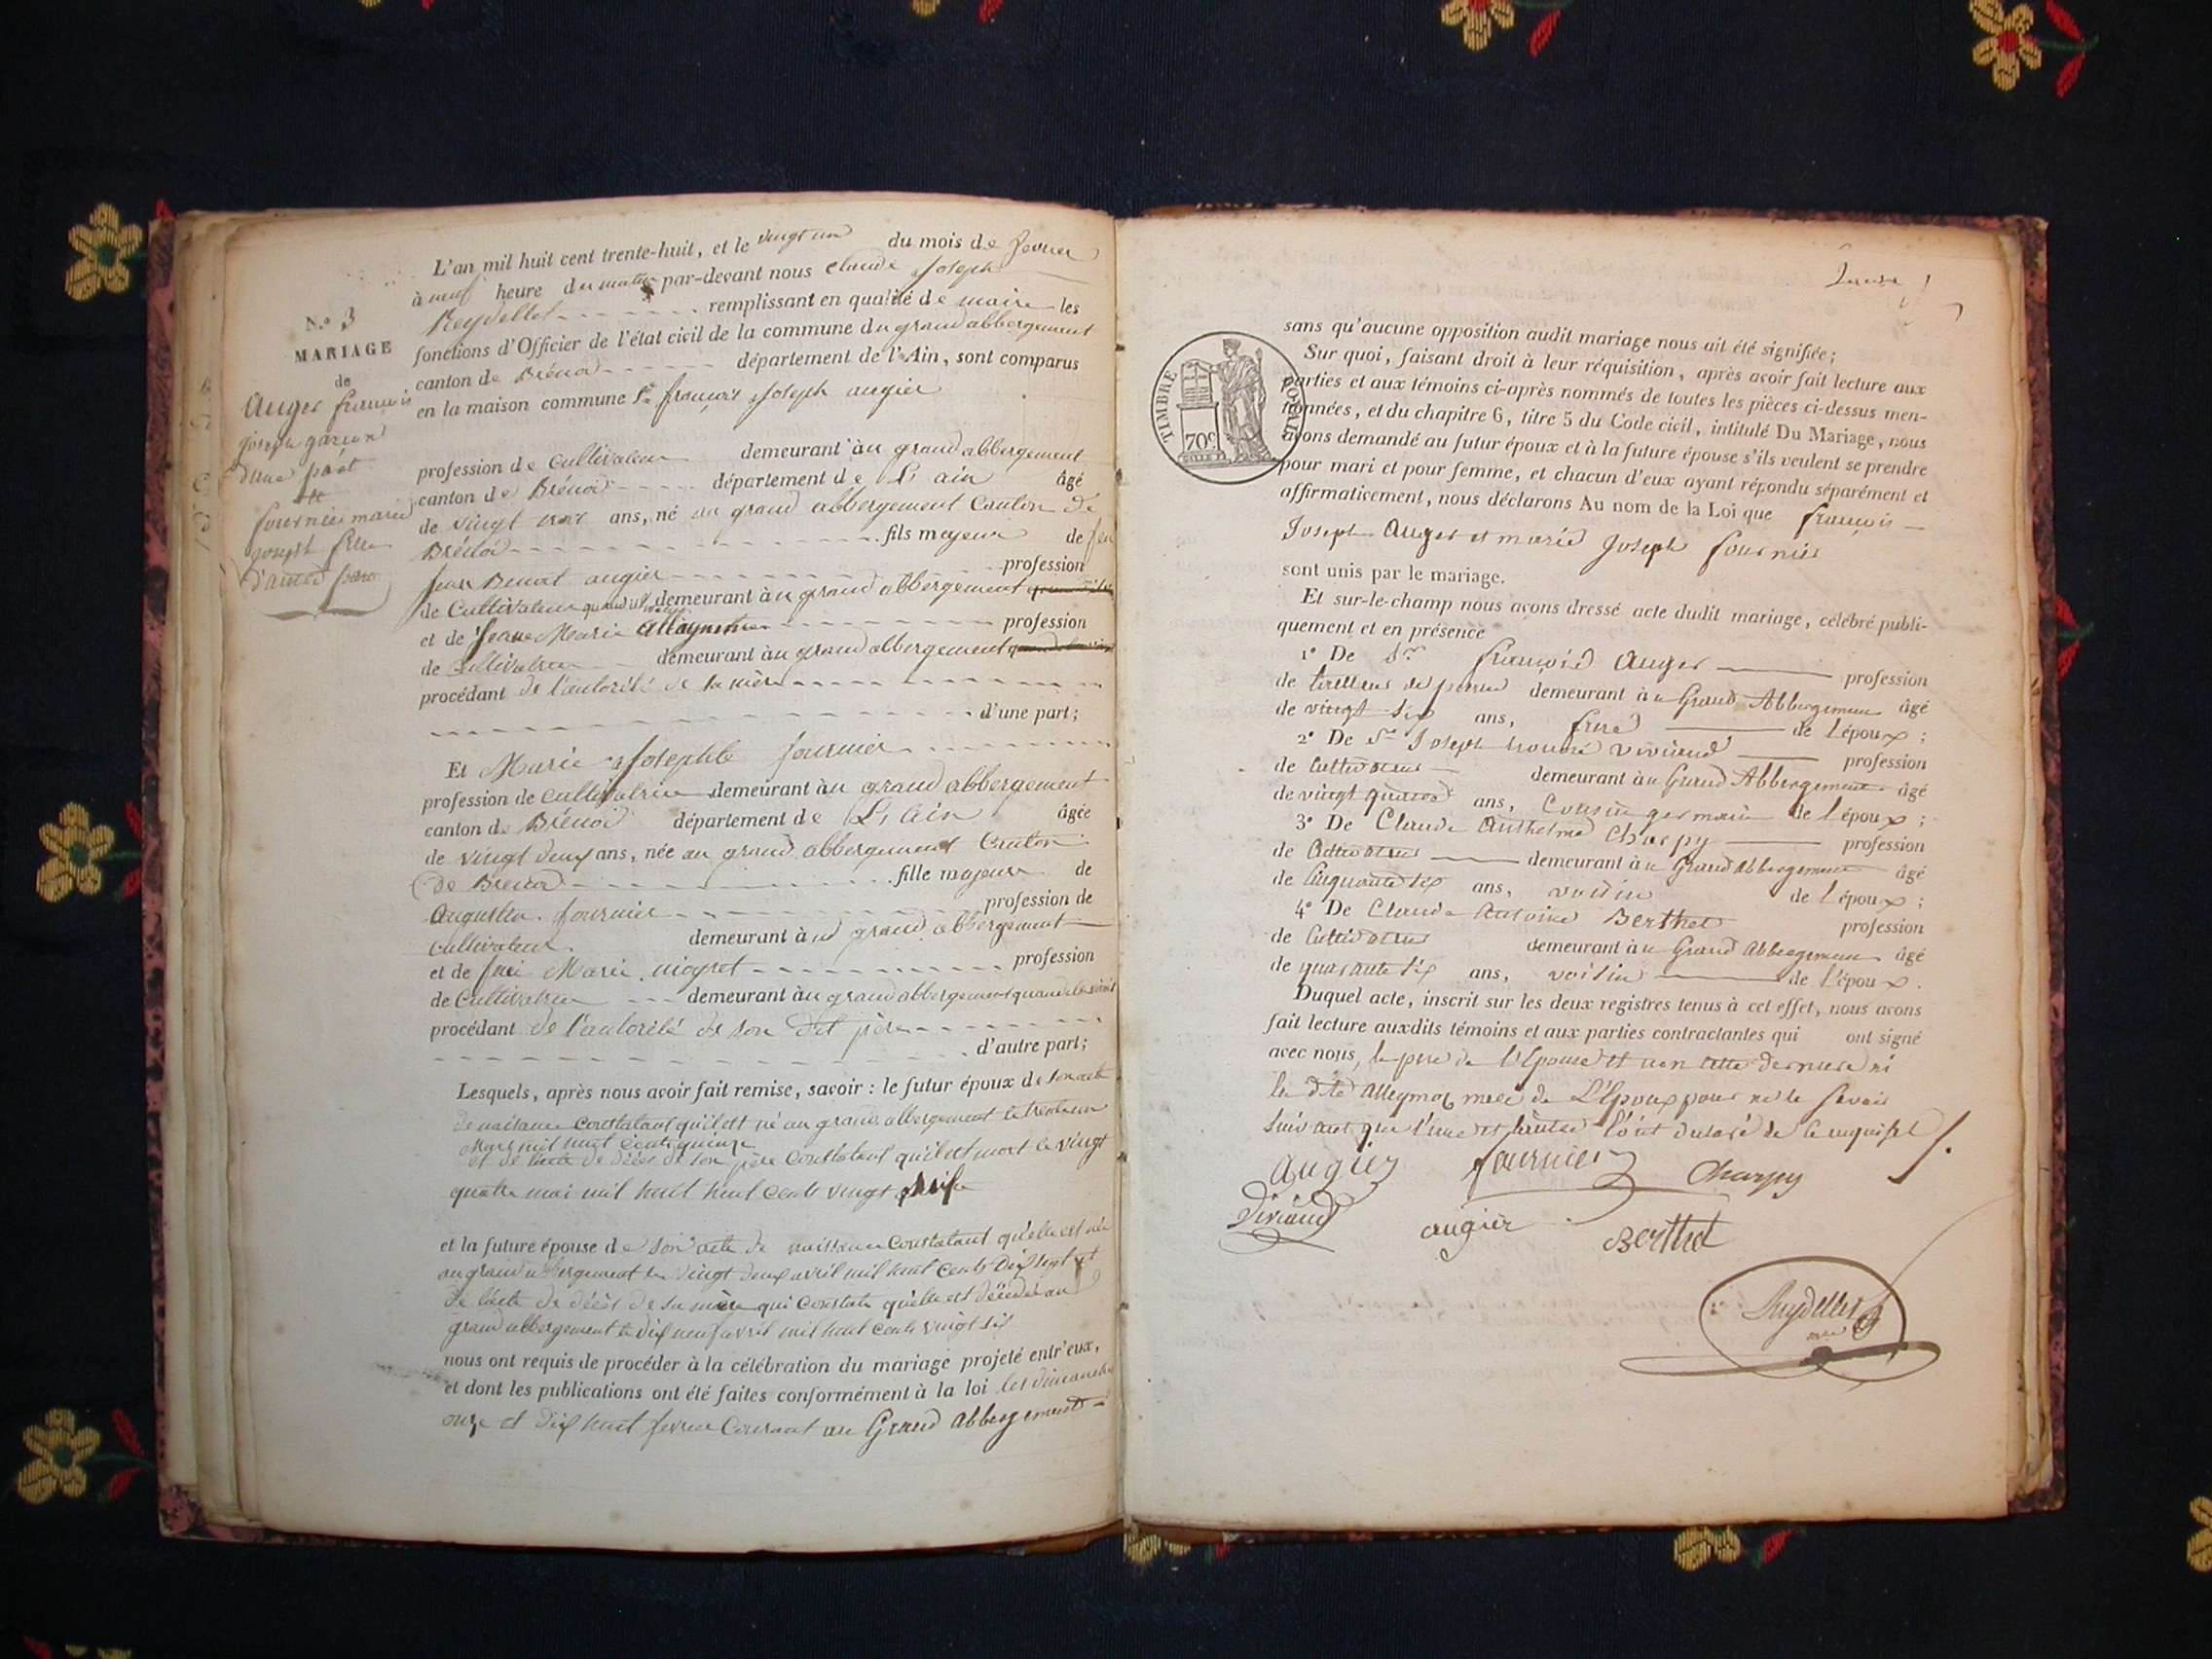 N.o 3
MARIAGE
de
Auger françois
joseph garçon
d'une part
et
fournier marie
joseph fille
d'autre part
L'an mil huit cent trente-huit, et le vingt un du mois de fevrier
à neuf heure du matin par-devant nous claude Joseph
Reydellet remplissant en qualité de maire les
fonctions d'Officier de l'état civil de la commune du grand abbergement
canton de Brénod département de l'Ain, sont comparus
en la maison commune Sr françois Joseph augier
profession de cultivateur demeurant au grand abbergement
canton de Brénod département de L'ain âgé
de vingt trois ans, né au grand abbergement Canton de
Brénod fils majeur de feu
Jean Benoit augier profession
de Cultivateur quand il vivait demeurant au grand abbergement
et de Jeane Marie profession
de Cultivatrice demeurant au grand abbergement
procédant de l'autorité de sa mère
d'une part;
Et Marie Josephte fournier
profession de cultivatrice demeurant au grand abbergement
canton de Brénod département de L'ain âgée
de vingt deux ans, née au grand abbergement Canton
de Brenod fille majeure de
Augustin fournier profession de
cultivateur demeurant à grand abbergement
et de feue Marie niogret profession
de Cultivatrice demeurant au grand abbergement quand elle vivait
procédant de l'autorité de son dit père
d'autre part;
Lesquels, après nous avoir fait remise, savoir : le futur époux de son acte
de naissance Constatant qu'il est né au grand abbergement le trente un
Mars mil huit cents quinze
et de l'acte de décès de son père Constatant qu'il est mort le vingt
quatre mai mil huit huit cents vingt
et la future épouse de son acte de naissance Constatant qu'elle est née
au grand abbergement le vingt deux avril mil huit cents dix sept et
de l'acte de décès de sa mère qui Constate qu'elle est décédée au
grand abbergement le dix neuf avril mil huit cents vingt six
nous ont requis de procéder à la célébration du mariage projeté entr'eux,
et dont les publications ont été faites conformément à la loi les dimanches
onze et dix huit fevrier Courant au Grand Abbergement
TIMBRE ROYAL
70c
sans qu'aucune opposition audit mariage nous ait été signifiée;
Sur quoi, faisant droit à leur réquisition, après avoir fait lecture aux
parties et aux témoins ci-après nommés de toutes les pièces ci-dessus men-
tionnées, et du chapitre 6, titre 5 du Code civil, intitulé Du Mariage, nous
avons demandé au futur époux et à la future épouse s'ils veulent se prendre
pour mari et pour femme, et chacun d'eux ayant répondu séparément et
affirmativement, nous déclarons Au nom de la Loi que françois
Joseph Auger et marie Joseph fournier
sont unis par le mariage.
Et sur-le-champ nous avons dressé acte dudit mariage, célébré publi-
quement et en présence
1o De Sr françois Auger profession
de tailleur de pierre demeurant au Grand Abbergement âgé
de vingt six ans, frere de l'époux;
2o De Sr Joseph viviand profession
de Cultivateur demeurant au Grand Abbergement âgé
de vingt quatre ans, Cousin germain de l'époux;
3o De Claude Anthelme Charpy profession
de Cultivateur demeurant au Grand Abbergement âgé
de Cinquante six ans, voisin de l'époux;
4o De Claude Antoine Berthet profession
de Cultivateur demeurant au Grand Abbergement âgé
de quarante six ans, voisin de l'époux.
Duquel acte, inscrit sur les deux registres tenus à cet effet, nous avons
fait lecture auxdits témoins et aux parties contractantes qui ont signé
avec nous, le pere de l'Epouse et non cette derniere ni
la dte Alleymoz mere de L'Epoux pour ne le savoir
suivant que l'une et l'autre l'ont declaré de ce requises
Augier fournier Charpy
Viviand augier Berthet
Reydellet